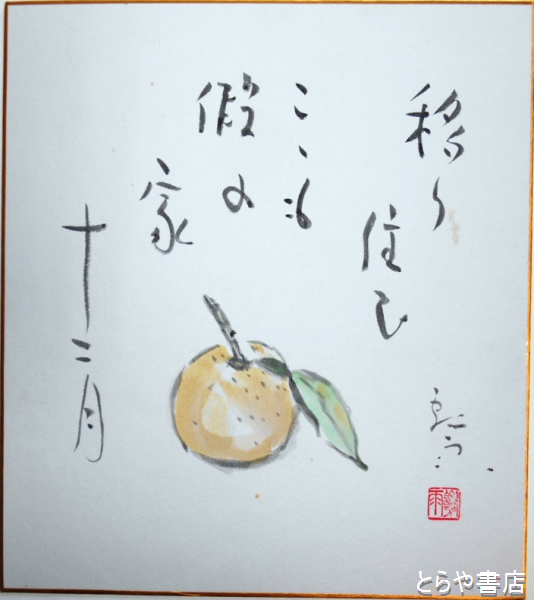 移り
住み
こゝも
假の
家
十二月
とらや書店